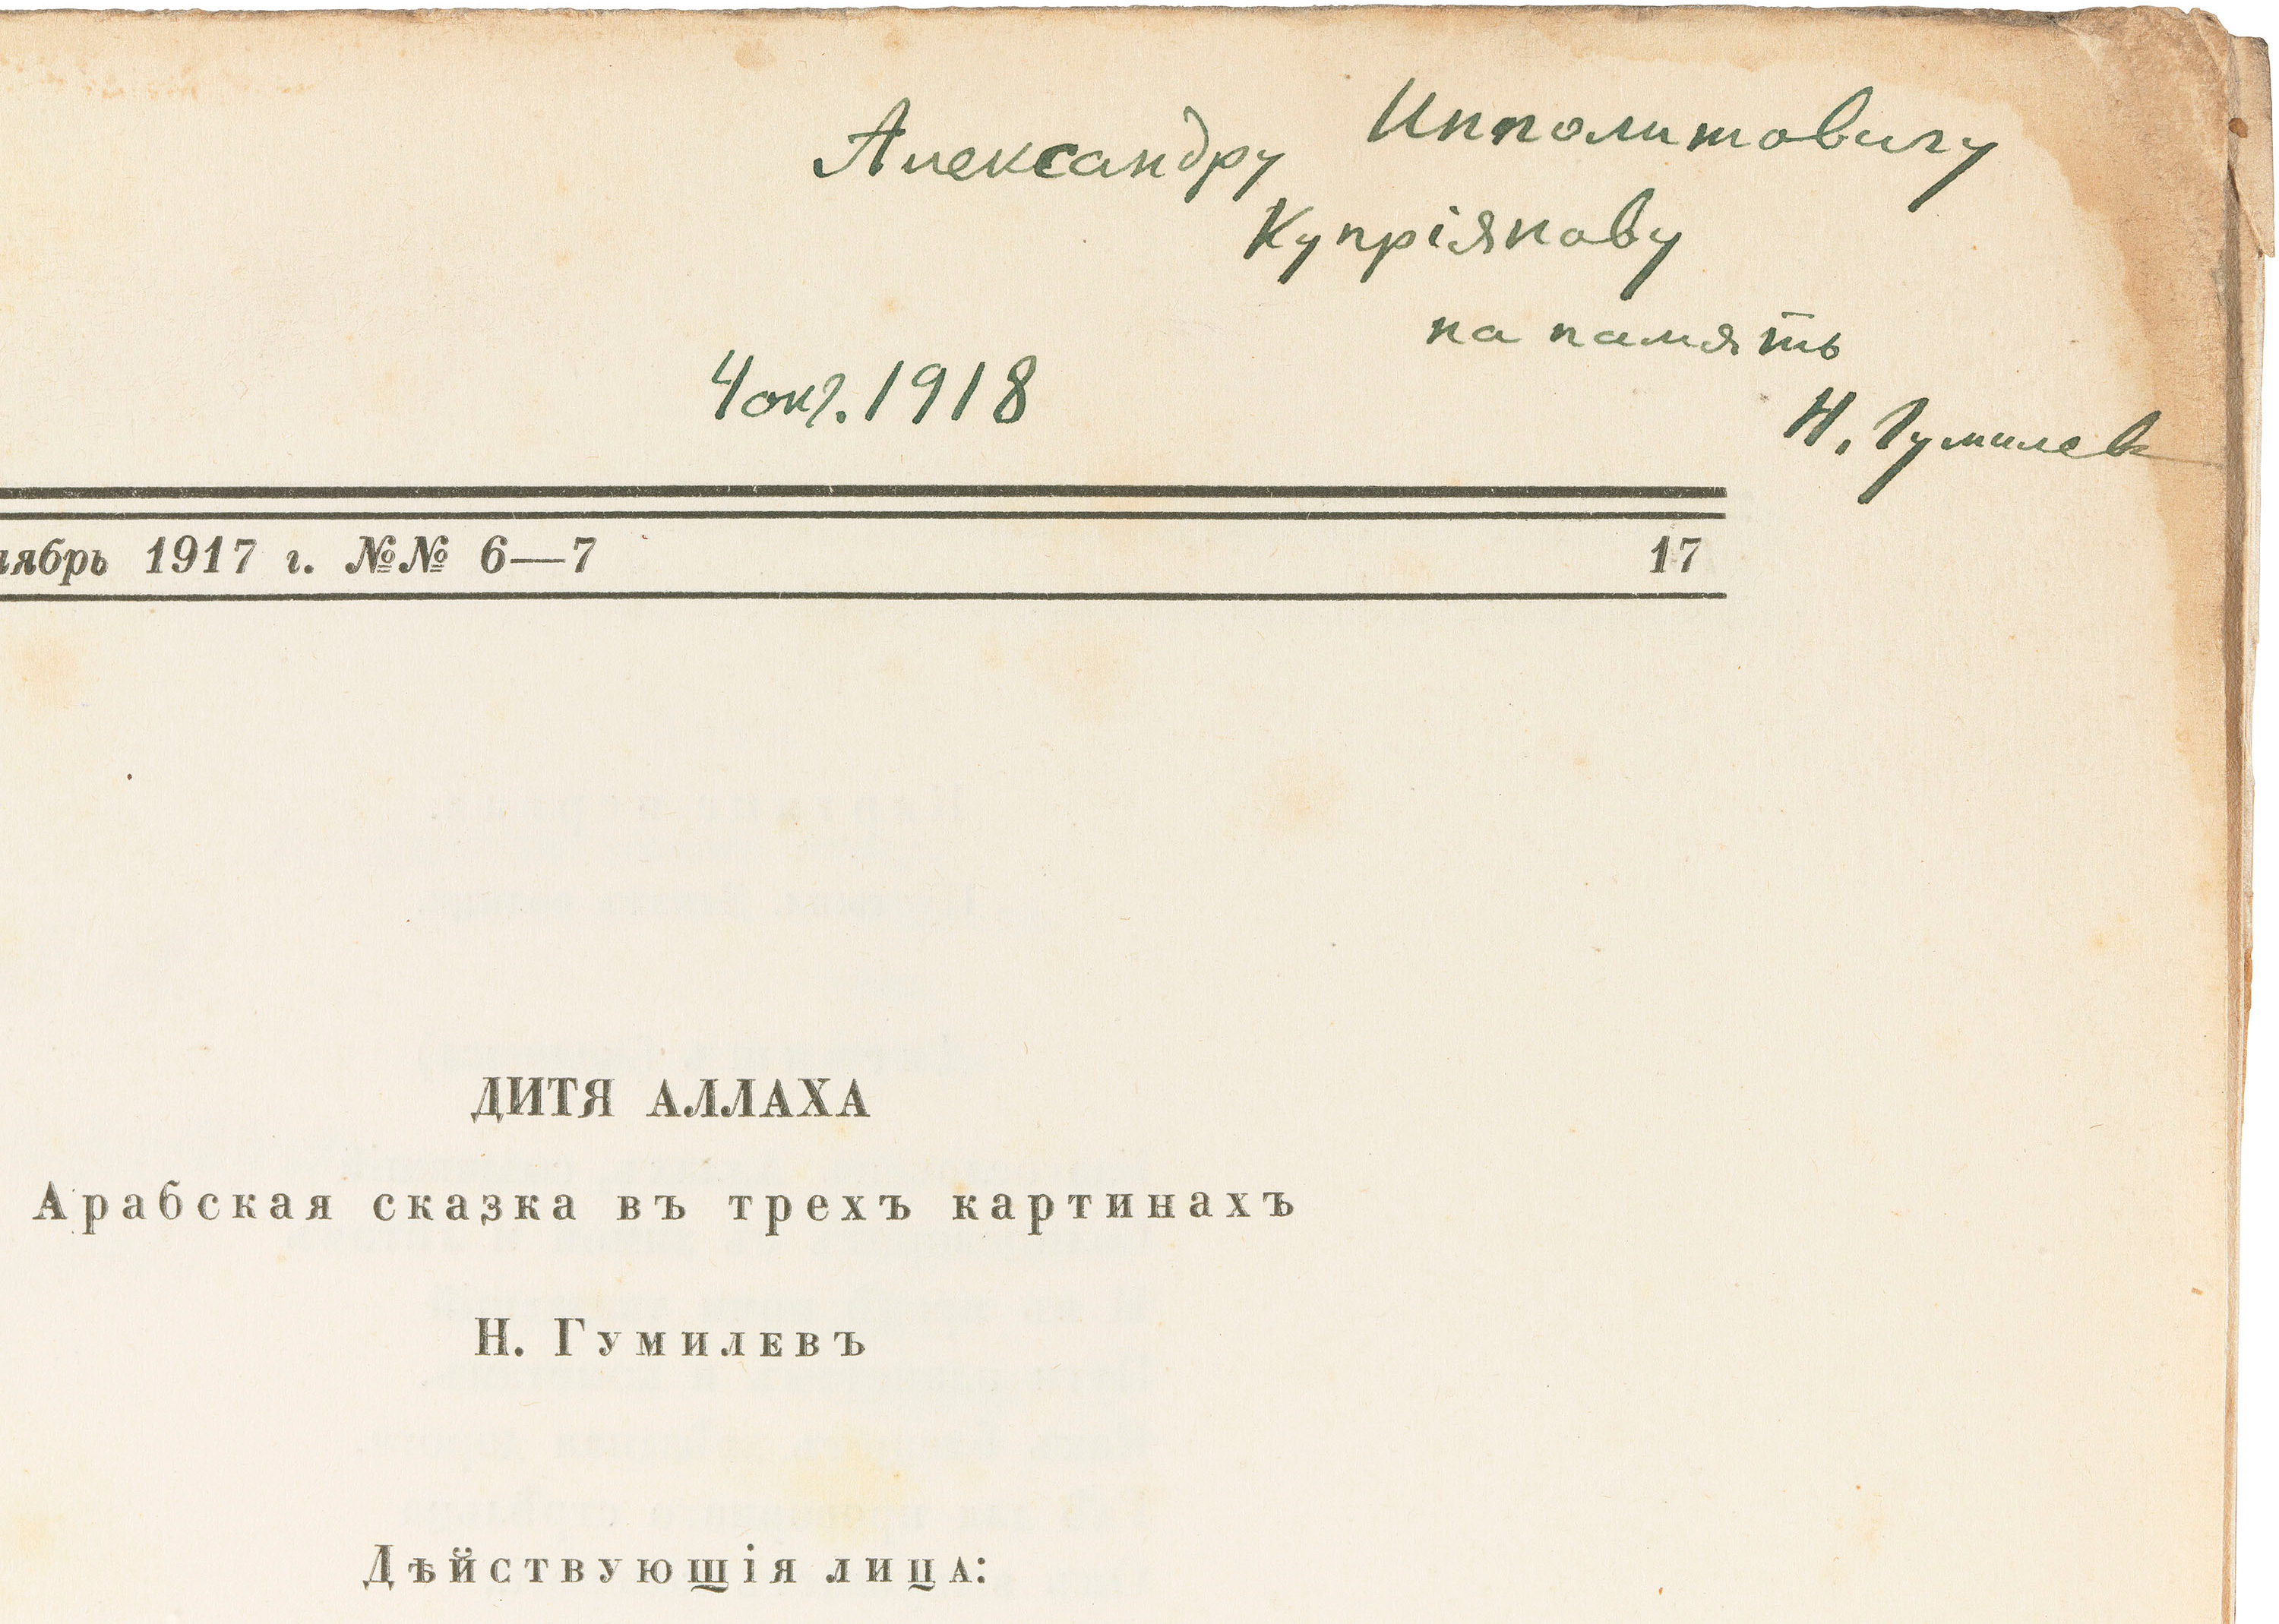 Александру Ипполитовичу
Купріянову
на память
4 окт. 1918
Н. Гумилев
ябрь 1917 г. №№ 6—7 17
ДИТЯ АЛЛАХА
Арабская сказка въ трехъ картинахъ
Н. Гумилевъ
Дѣйствующія лица: